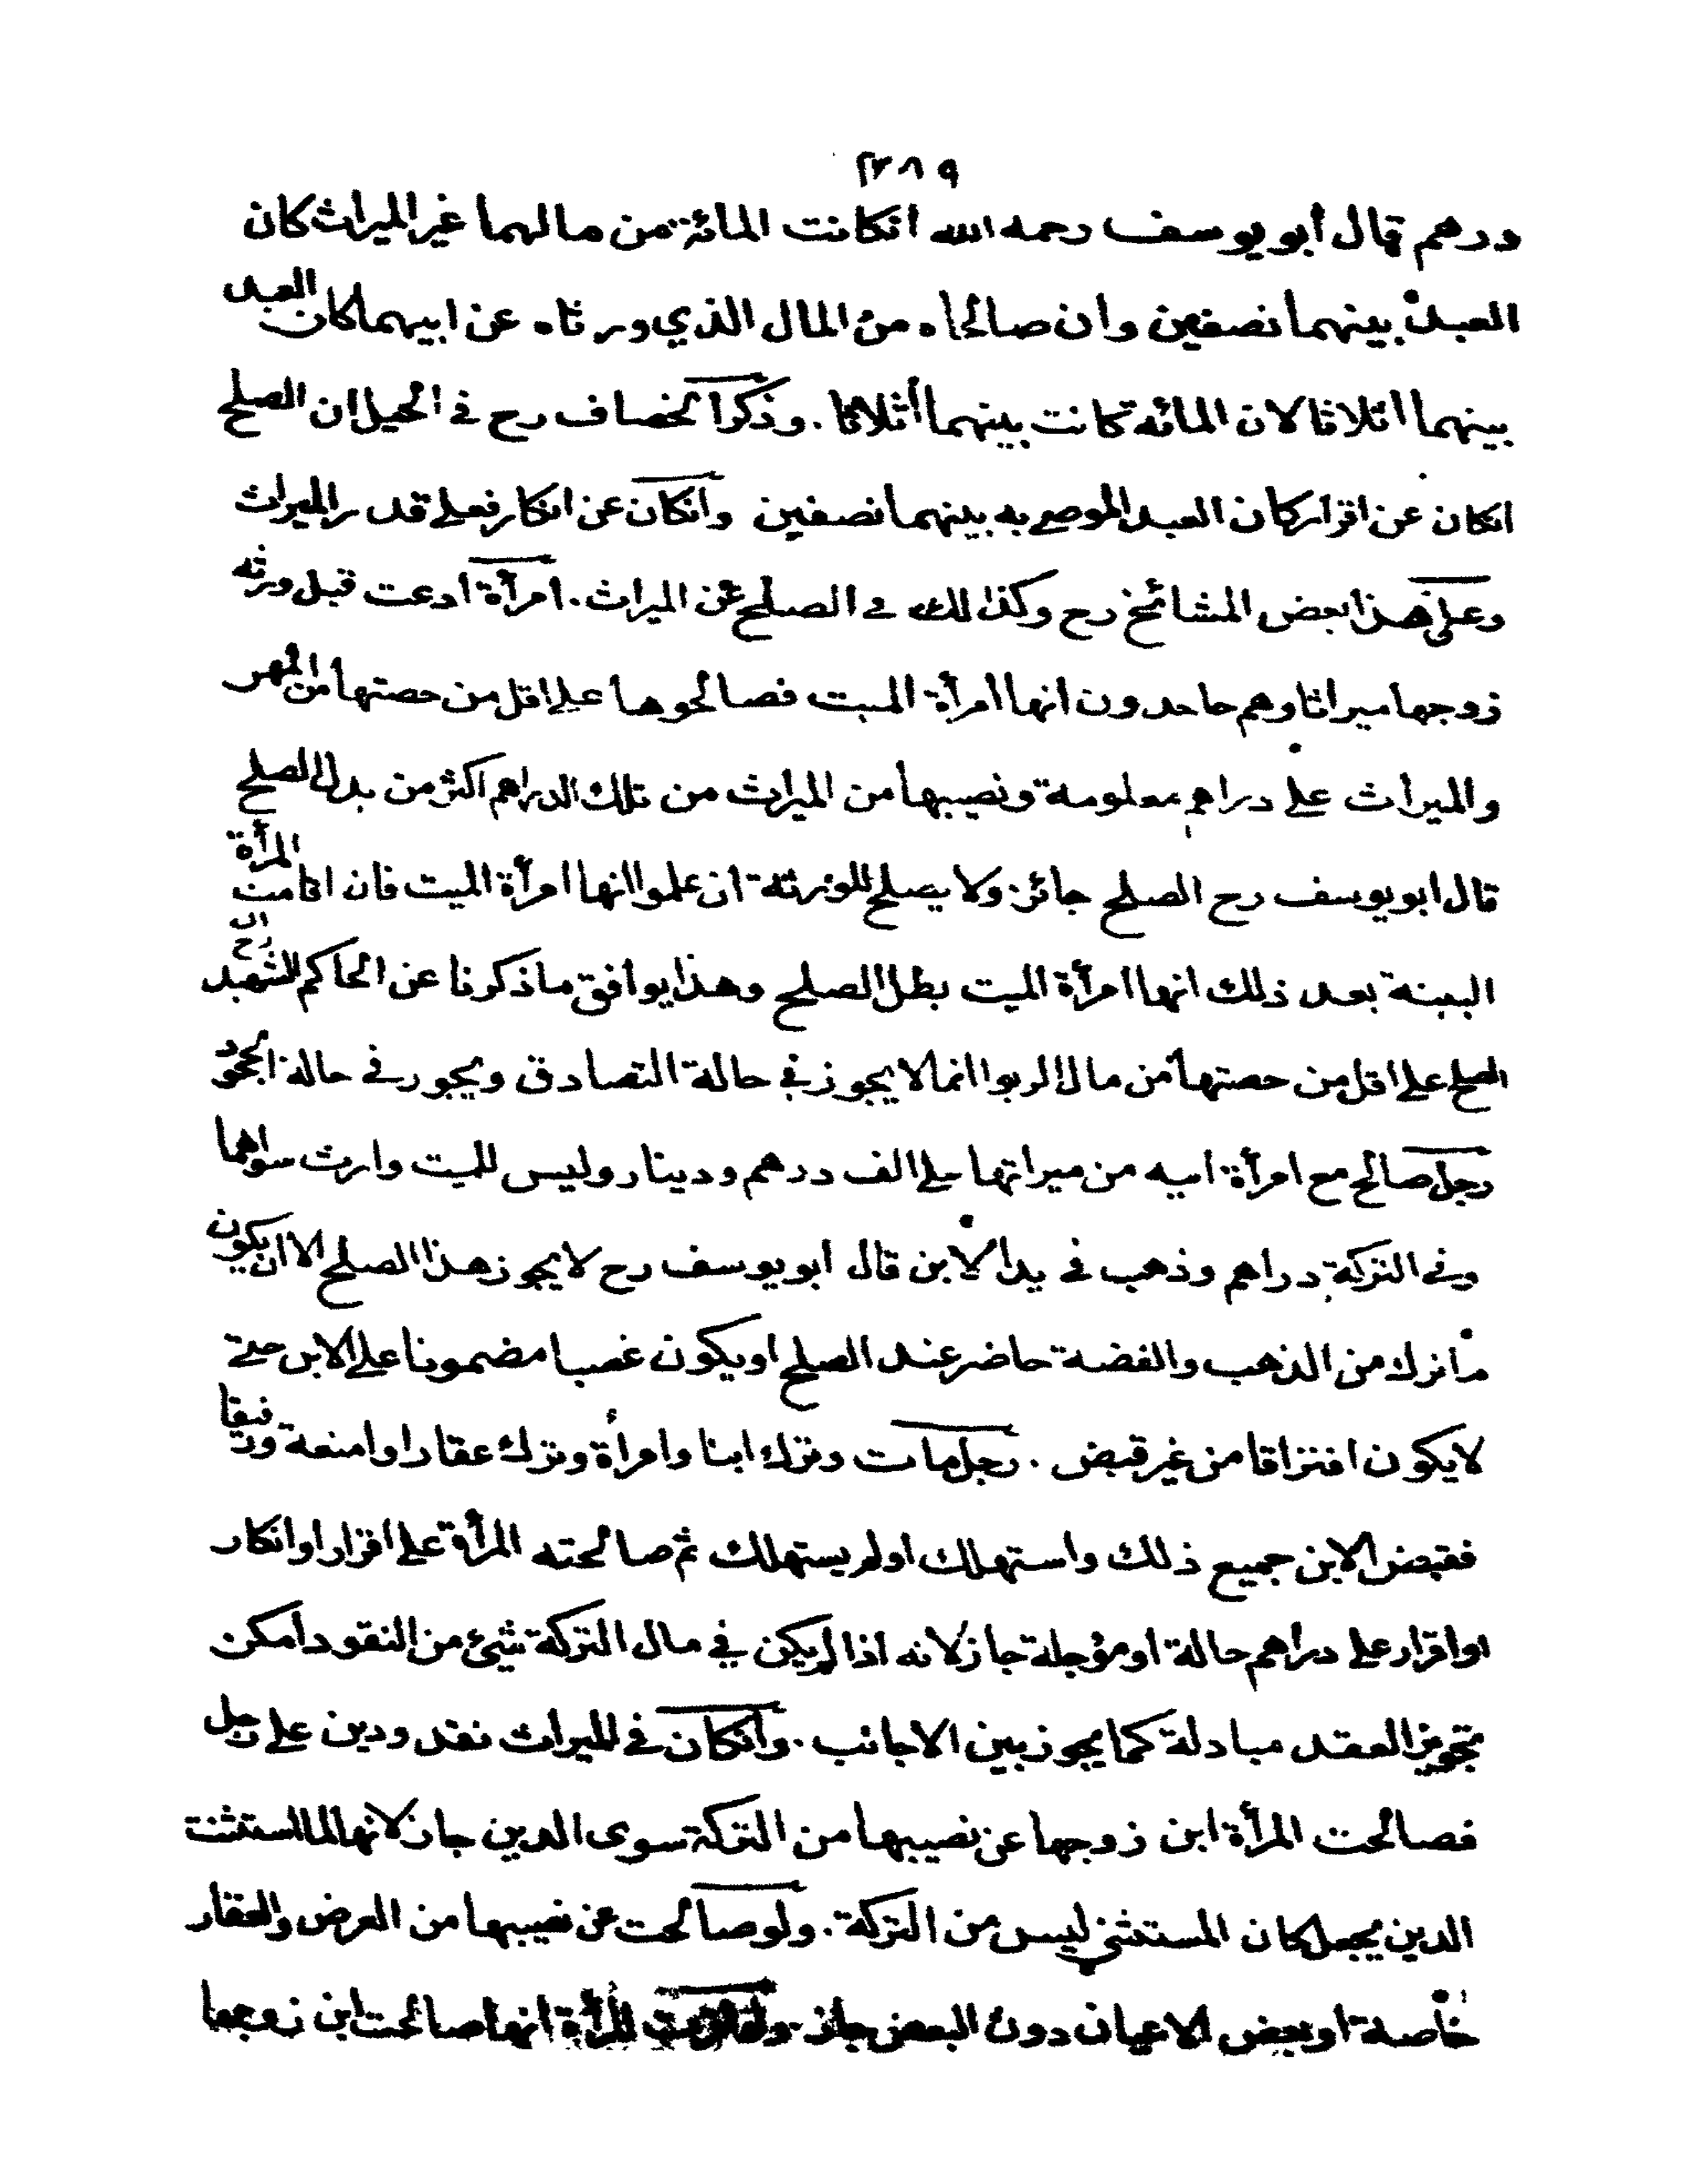 ٢٣٨٩
درهم قال أبو يوسف رحمه الله انكانت المائة من مالهما غير الميراث كان
العبد بينهما نصفين وان صالحاه من المال الذي ورثاه عن ابيهما كان العبد
بينهما اثلاثا لان المائه كانت بينهما أثلاثا . وذكر الخصاف رح في الحيل ان الصلح
انكان عن اقرار كان العبد الموصى به بينهما نصفين وانكان عن انكار فعلى قدر الميراث
وعلى هذا بعض المشائخ رح وكذلك في الصلح عن الميراث . امرأة ادعت قبل ورثه
زوجها ميراثا وهم جاحدون انها امرأة الميت فصالحوها على اقل من حصتها من المهر
والميراث على دراهم معلومة ونصيبها من الميراث من تلك الدراهم اكثر من بدل الصلح
قال ابو يوسف رح الصلح جائز ولا يصلح للورثة ان علموا انها امرأة الميت فان اقامت المرأة
البينة بعد ذلك انها امرأة الميت بطل الصلح وهذا يوافق ما ذكرنا عن الحاكم الشهيد رح ان
الصلح على اقل من حصتها من مال الربوا انما لا يجوز في حالة التصادق ويجوز في حالة الجحود
رجل صالح مع امرأة ابيه من ميراثها على الف درهم ودينار وليس للميت وارث سواهما
وفي التركة دراهم وذهب في يد الابن قال ابو يوسف رح لا يجوز هذا الصلح الا ان يكون
ما ترك من الذهب والفضة حاضر عند الصلح او يكون غصبا مضمونا على الابن حتى
لا يكون افتراقا من غير قبض . رجل مات وترك ابنا وامرأة وترك عقارا وامتعة ورقيقا
فقبض الابن جميع ذلك واستهلك اولم يستهلك ثم صالحته المرأة على اقرار او انكار
او اقرار على دراهم حالة او مؤجلة جاز لانه اذا لم يكن في مال التركة شيئ من النقود أمكن
تجويز العقد مبادلة كما يجوز بين الاجانب . وانكان في الميراث نقد ودين على رجل
فصالحت المرأة ابن زوجها عن نصيبها من التركة سوى الدين جاز لانها لما استثنت
الدين يجعل كان المستثنى ليس من التركة . ولو صالحت عن نصيبها من العرض والعقار
خاصة او بعض الاعيان دون البعض جاز المرأة انها صالحت ابن زوجها